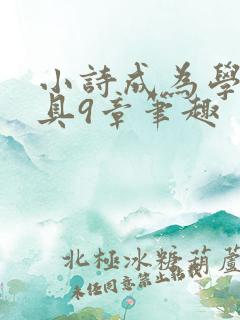 小詩成為學
具9章筆趣
北極冰糖葫蘆
未任同意禁止轉載